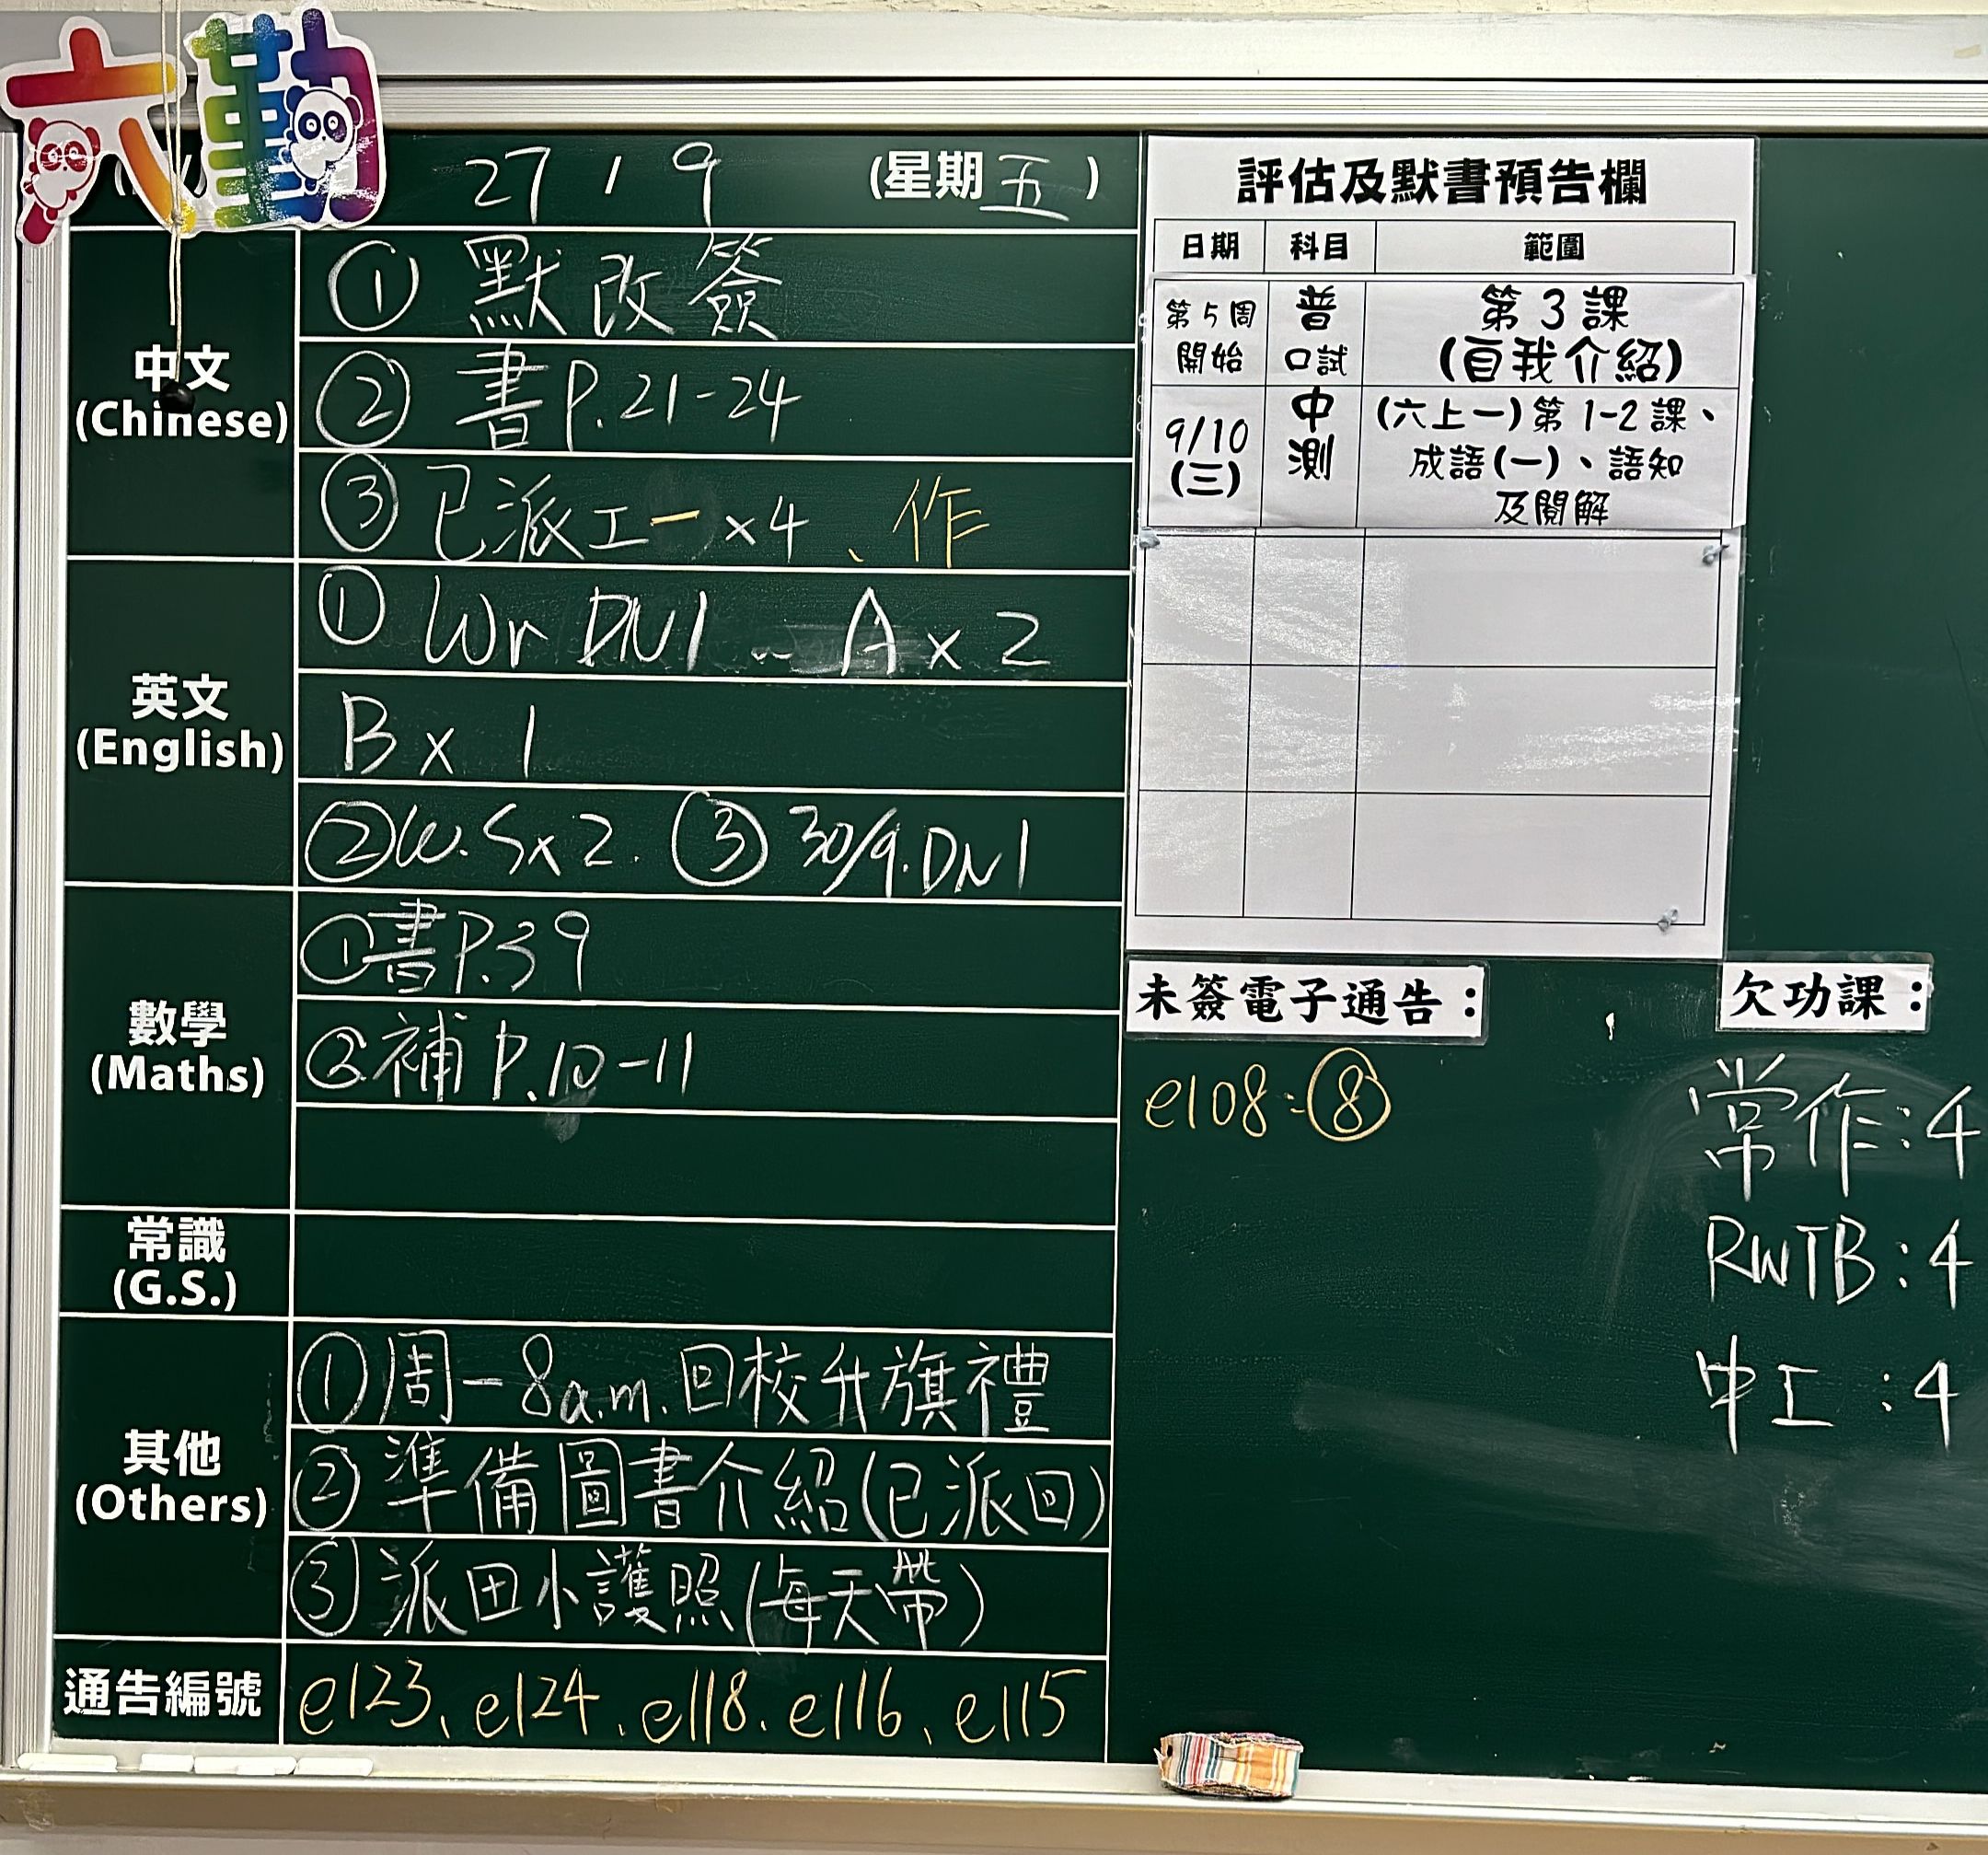 六勤
27 / 9 (星期五)
中文
(Chinese)
① 默改簽
② 書P.21-24
③ 已派工一 ×4、作
英文
(English)
① Wr DN1 A × 2
B × 1
② W.S×2. ③ 30/9.DN1
數學
(Maths)
① 書P.39
② 補 P.10-11
常識
(G.S.)
其他
(Others)
① 周一 8a.m. 回校升旗禮
② 準備圖書介紹(已派回)
③ 派回小護照(每天帶)
通告編號
e123、e124、e118、e116、e115
評估及默書預告欄
日期 科目 範圍
第5周開始 普口試 第3課(自我介紹)
9/10(三) 中測 (六上一)第1-2課、
成語(一)、語知
及閱解
未簽電子通告：
e108：⑧
欠功課：
常作：4
RWTB：4
中工：4